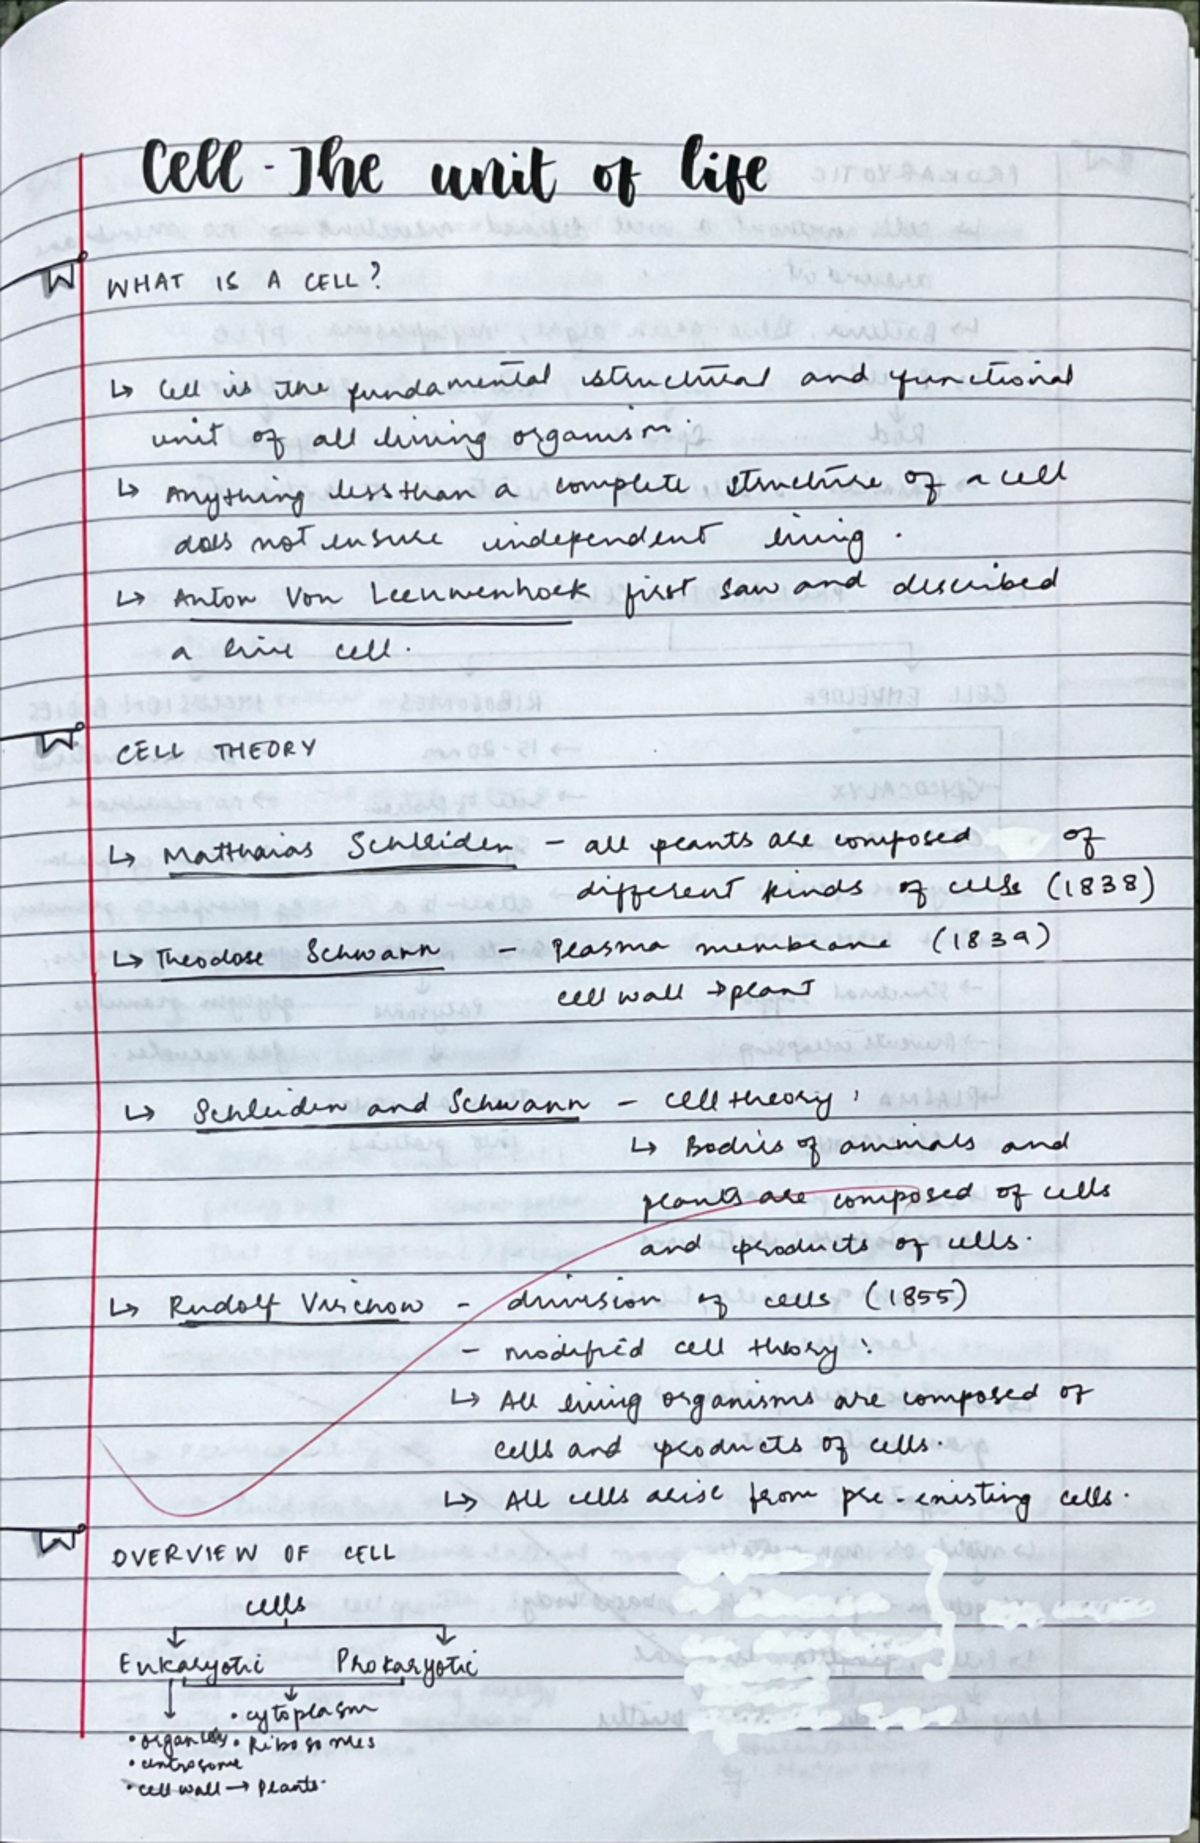 Cell - The unit of life
WHAT IS A CELL?
↳ Cell is the fundamental structural and functional
unit of all living organism.
↳ Anything less than a complete structure of a cell
does not ensure independent living.
↳ Anton Von Leeuwenhoek first saw and described
a live cell.
CELL THEORY
↳ Matthaias Schleiden - all plants are composed of
different kinds of cells (1838)
↳ Theodose Schwann - Plasma membrane (1839)
cell wall → plant
↳ Schleiden and Schwann - cell theory:
↳ Bodies of animals and
plants are composed of cells
and products of cells.
↳ Rudolf Virchow - division of cells (1855)
- modified cell theory:
↳ All living organisms are composed of
cells and products of cells.
↳ All cells arise from pre-existing cells.
OVERVIEW OF CELL
cells
Eukaryotic Prokaryotic
• cytoplasm
• organelles • Ribosomes
• centrosome
• cell wall → Plants.